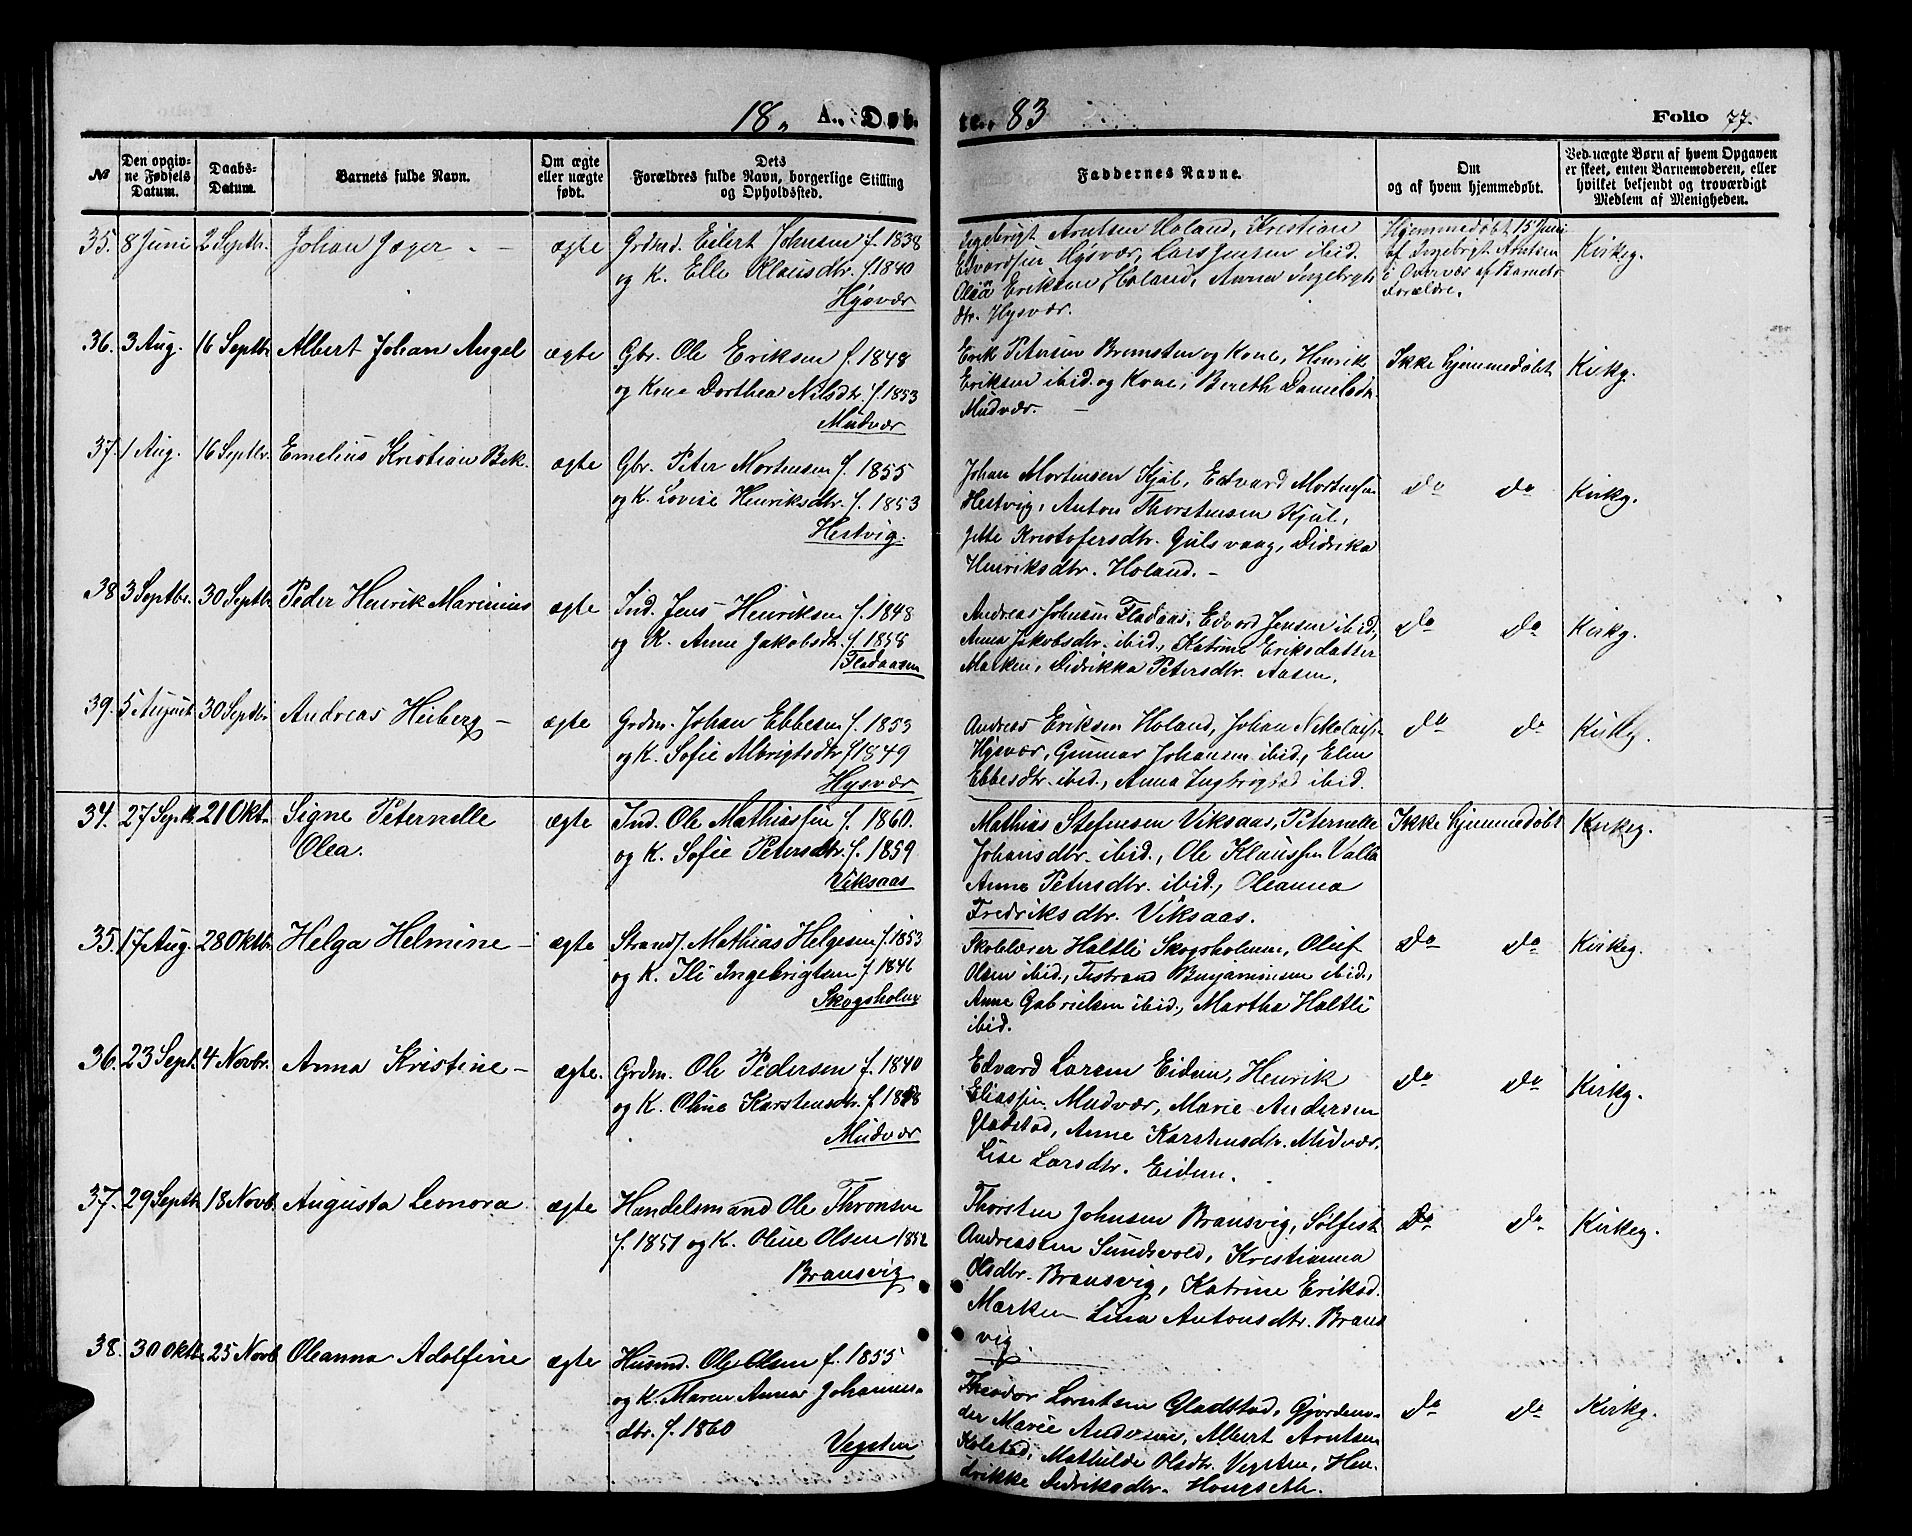 18 „ A., Døb-
te. 83
Folio 77.
№
Den opgiv-
ne Fødsels
Datum.
Daabs-
Datum.
Barnets fulde Navn.
Om ægte
eller uægte
født.
Dets
Forældres fulde Navn, borgerlige Stilling
og Opholdssted.
Faddernes Navne.
Om
og af hvem hjemmedøbt.
Ved uægte Børn af hvem Opgaven
er skeet, enten Barnemoderen, eller
hvilket bekjendt og troværdigt
Medlem af Menigheden.
35. 8 Juni 2 Septbr. Johan Jæger. - ægte
Grdmd. Eilert Johnsen f. 1838
og K. Elle Klausdtr. f. 1840
Hysvær
Ingebrigt Arntsen Holand, Kristian
Edvardsen Hysvær, Lars Jensen ibid.
Eriksen Holand, Anna Ingebrigts
dtr. Hysvær.
Hjemmedøbt 15 Juni
af Ingebrigt Arntsen
i Overvær af Barnets
Forældre.
Kirkeg.
36. 3 Aug. 16 Septbr. Albert Johan Angel ægte
Gbr. Ole Eriksen f. 1848
og Kone Dorthea Nilsdtr. f. 1853
Mudvær
Erik Petersen Bremsten og Kone, Henrik
Eriksen ibid. og Kone, Bereth Danielsdtr.
Mudvær. -
Ikke hjemmedøbt
Kirkg.
37. 1 Aug. 16 Septbr. Emelius Kristian Bek. ægte
Gbr. Peter Mortensen f. 1855
og K. Lovise Henriksdtr. f. 1853
Hestvig.
Johan Mortensen Kjul, Edvard Mortensen
Hestvig, Anton Thorstensen Kjul,
Jette Kristofersdtr. Gulsvaag, Didrika
Henriksdtr. Holand. -
do do
Kirkg.
38 3 Septbr. 30 Septbr. Peder Henrik Marinius ægte
Ind. Jens Henriksen f. 1848
og K. Anne Jakobsdtr. f. 1858
Fladaasen
Andreas Johnsen Fladaas, Edvard Jensen ibid,
Anna Jakobsdtr. ibid., Katrine Eriksdatter
Marken, Didrikka Petersdtr. Aasen.
do do
Kirkg.
39. 5 August 30 Septbr. Andreas Heiberg - ægte
Grdm. Johan Ebbesen f. 1853
og K. Sofie Albrigtsdtr f 1849
Hysvær
Andreas Eriksen Holand, Johan Nikolais.
Hysvær, Gunnar Johansen ibid., Elen
Ebbesdtr. ibid., Anna Ingbrigtsd ibid.
do do
Kirkg.
34. 27 Septbr. 21 Oktr. Signe Peternelle
Olea.
ægte
Ind. Ole Mathiassen f. 1860.
og K. Sofie Petersdtr. f. 1859
Viksaas
Mathias Stefensen Viksaas, Peternelle
Johansdtr. ibid., Ole Klaussen Valla
Anne Petersdtr. ibid., Oleanna
Fredriksdtr. Viksaas.
Ikke hjemmedøbt
Kirkeg.
35. 17 Aug. 28 Oktbr. Helga Helmine - ægte
Strands. Mathias Helgesen f. 1853
og K. Ili Ingebrigtsen f 1846
Skogsholm
Skolelærer Haltli Skogsholmen, Oluf
Olsen ibid., Benjaminsen ibid.,
Anne Gabrielsen ibid., Martha Haltli
ibid.
do do
Kirkeg.
36. 23 Sept. 4 Novbr. Anna Kristine - ægte.
Grdm. Ole Pedersen f. 1840
og K. Oline Karstensdtr. f. 1848
Mudvær
Edvard Larsen Eidem, Henrik
Eliassen Mudvær, Marie Andersen
Gladstad, Anne Karstensdtr. Mudvær,
Lise Larsdtr. Eidem.
do do
Kirkeg.
37. 29 Septbr 18 Novb. Augusta Leonora ægte
Handelsmand Ole Thronsen
f. 1851 og K. Oline Olsen 1852
Bransvig
Thorsten Johnsen Bransvig, Sølfest
Andreassen Sundsvold, Kristianna
Olsdtr. Bransvig, Katrine Eriksd.
Marken Lina Antonsdtr. Brans
vig
do do
Kirkeg.
38. 30 Oktb. 25 Novb Oleanna Adolfine ægte
Husmd. Ole Olsen f. 1855
og K. Maren Anna Johannes-
dtr. f. 1860
Vegsten
Theodor Lorntsen Gladstad, Gjordemo-
der Marie Andersen, Albert Arntsen
Kolstad, Mathilde Olsdtr. Vegsten, Hen-
drikke Didriksdtr. Hongseth.
do do
Kirkg.